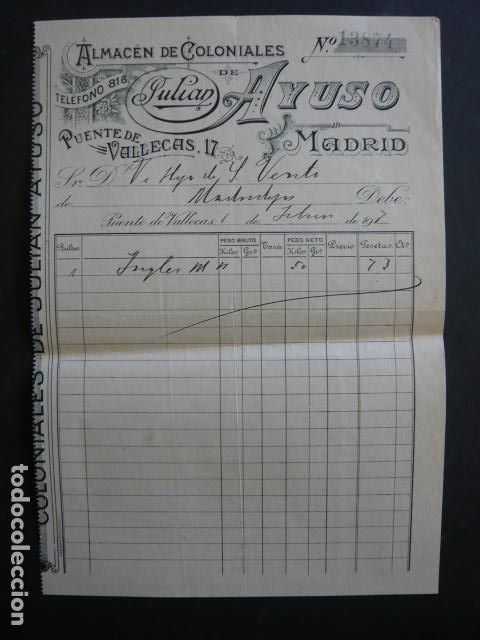 ALMACÉN DE COLONIALES
Nº 13874
DE
TELÉFONO 818
Julian AYUSO
PUENTE DE VALLECAS, 17
MADRID
Sr. D. Vi
de Debe:
Puente de Vallecas, 1 de Febrero de 191
Bultos PESO BRUTO Kilos Grs Tara PESO NETO Kilos Grs Precio Pesetas Cts
1 Ingles 50 73
COLONIALES DE JULIAN AYUSO
todocoleccion
todocoleccion